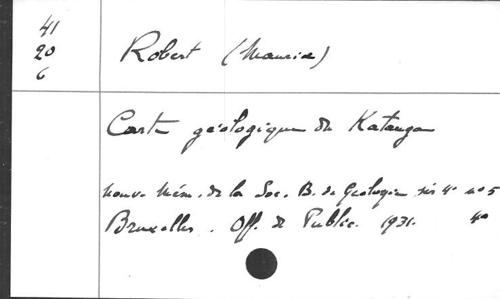 41
20
6
Robert (Maurice)
Carte géologique du Katanga
nouv. Mém. de la Soc. B. de Géologie sér 4° n° 5
Bruxelles. Off. de Public. 1931. 4°